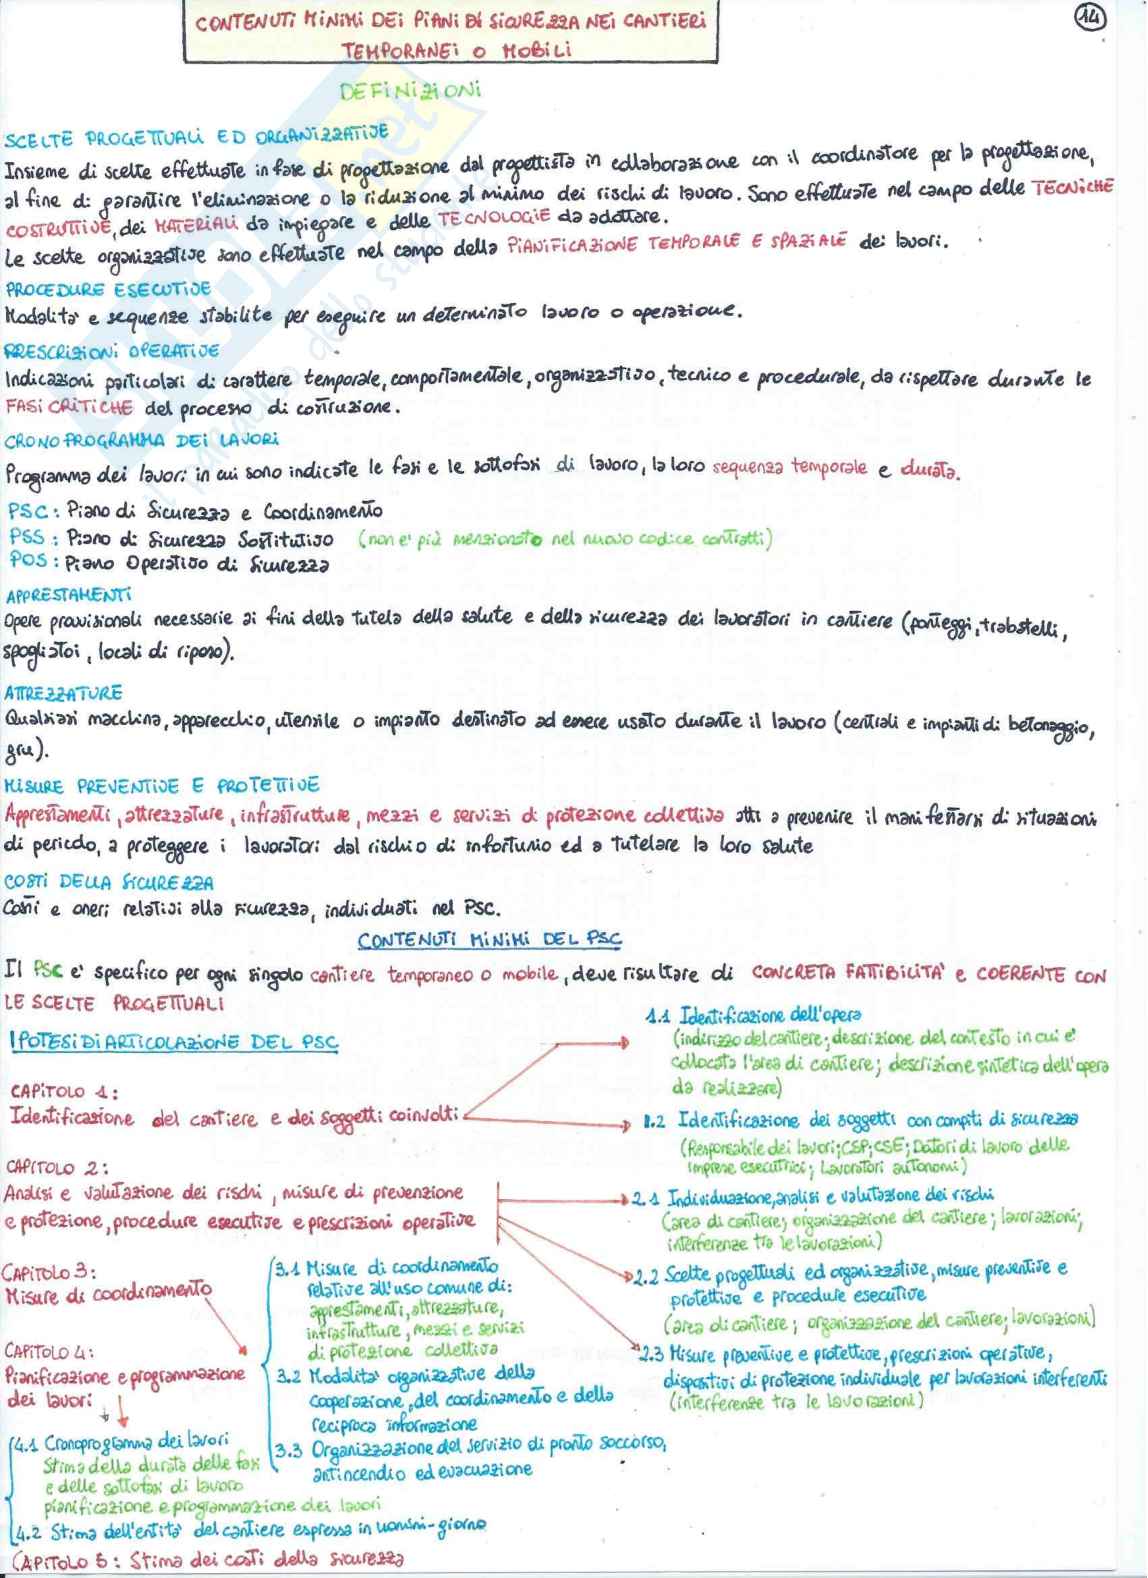 CONTENUTI MINIMI DEI PIANI DI SICUREZZA NEI CANTIERI
TEMPORANEI O MOBILI
14
DEFINIZIONI
SCELTE PROGETTUALI ED ORGANIZZATIVE
Insieme di scelte effettuate in fase di progettazione dal progettista in collaborazione con il coordinatore per la progettazione,
al fine di garantire l'eliminazione o la riduzione al minimo dei rischi di lavoro. Sono effettuate nel campo delle TECNICHE
COSTRUTTIVE, dei MATERIALI da impiegare e delle TECNOLOGIE da adottare.
Le scelte organizzative sono effettuate nel campo della PIANIFICAZIONE TEMPORALE E SPAZIALE dei lavori.
PROCEDURE ESECUTIVE
Modalità e sequenze stabilite per eseguire un determinato lavoro o operazione.
PRESCRIZIONI OPERATIVE
Indicazioni particolari di carattere temporale, comportamentale, organizzativo, tecnico e procedurale, da rispettare durante le
FASI CRITICHE del processo di costruzione.
CRONOPROGRAMMA DEI LAVORI
Programma dei lavori in cui sono indicate le fasi e le sottofasi di lavoro, la loro sequenza temporale e durata.
PSC: Piano di Sicurezza e Coordinamento
PSS: Piano di Sicurezza Sostitutivo (non e' più menzionato nel nuovo codice contratti)
POS: Piano Operativo di Sicurezza
APPRESTAMENTI
Opere provvisionali necessarie ai fini della tutela della salute e della sicurezza dei lavoratori in cantiere (ponteggi, trabatelli,
spogliatoi, locali di riposo).
ATTREZZATURE
Qualsiasi macchina, apparecchio, utensile o impianto destinato ad essere usato durante il lavoro (centrali e impianti di betonaggio,
gru).
MISURE PREVENTIVE E PROTETTIVE
Apprestamenti, attrezzature, infrastrutture, mezzi e servizi di protezione collettiva atti a prevenire il manifestarsi di situazioni
di pericolo, a proteggere i lavoratori dal rischio di infortunio ed a tutelare la loro salute
COSTI DELLA SICUREZZA
Costi e oneri relativi alla sicurezza, individuati nel PSC.
CONTENUTI MINIMI DEL PSC
Il PSC e' specifico per ogni singolo cantiere temporaneo o mobile, deve risultare di CONCRETA FATTIBILITA' e COERENTE CON
LE SCELTE PROGETTUALI
IPOTESI DI ARTICOLAZIONE DEL PSC
CAPITOLO 1:
Identificazione del cantiere e dei soggetti coinvolti
1.1 Identificazione dell'opera
(indirizzo del cantiere; descrizione del contesto in cui e'
collocata l'area di cantiere; descrizione sintetica dell'opera
da realizzare)
1.2 Identificazione dei soggetti con compiti di sicurezza
(Responsabile dei lavori; CSP; CSE; Datori di lavoro delle
imprese esecutrici; Lavoratori autonomi)
CAPITOLO 2:
Analisi e valutazione dei rischi, misure di prevenzione
e protezione, procedure esecutive e prescrizioni operative
2.1 Individuazione, analisi e valutazione dei rischi
(area di cantiere; organizzazione del cantiere; lavorazioni;
interferenze tra le lavorazioni)
2.2 Scelte progettuali ed organizzative, misure preventive e
protettive e procedure esecutive
(area di cantiere; organizzazione del cantiere; lavorazioni)
2.3 Misure preventive e protettive, prescrizioni operative,
dispositivi di protezione individuale per lavorazioni interferenti
(interferenze tra le lavorazioni)
CAPITOLO 3:
Misure di coordinamento
3.1 Misure di coordinamento
relative all'uso comune di:
apprestamenti, attrezzature,
infrastrutture, mezzi e servizi
di protezione collettiva
3.2 Modalità organizzative della
cooperazione, del coordinamento e della
reciproca informazione
3.3 Organizzazione del servizio di pronto soccorso,
antincendio ed evacuazione
CAPITOLO 4:
Pianificazione e programmazione
dei lavori
4.1 Cronoprogramma dei lavori
Stima della durata delle fasi
e delle sottofasi di lavoro
pianificazione e programmazione dei lavori
4.2 Stima dell'entità del cantiere espressa in uomini-giorno
CAPITOLO 5: Stima dei costi della sicurezza